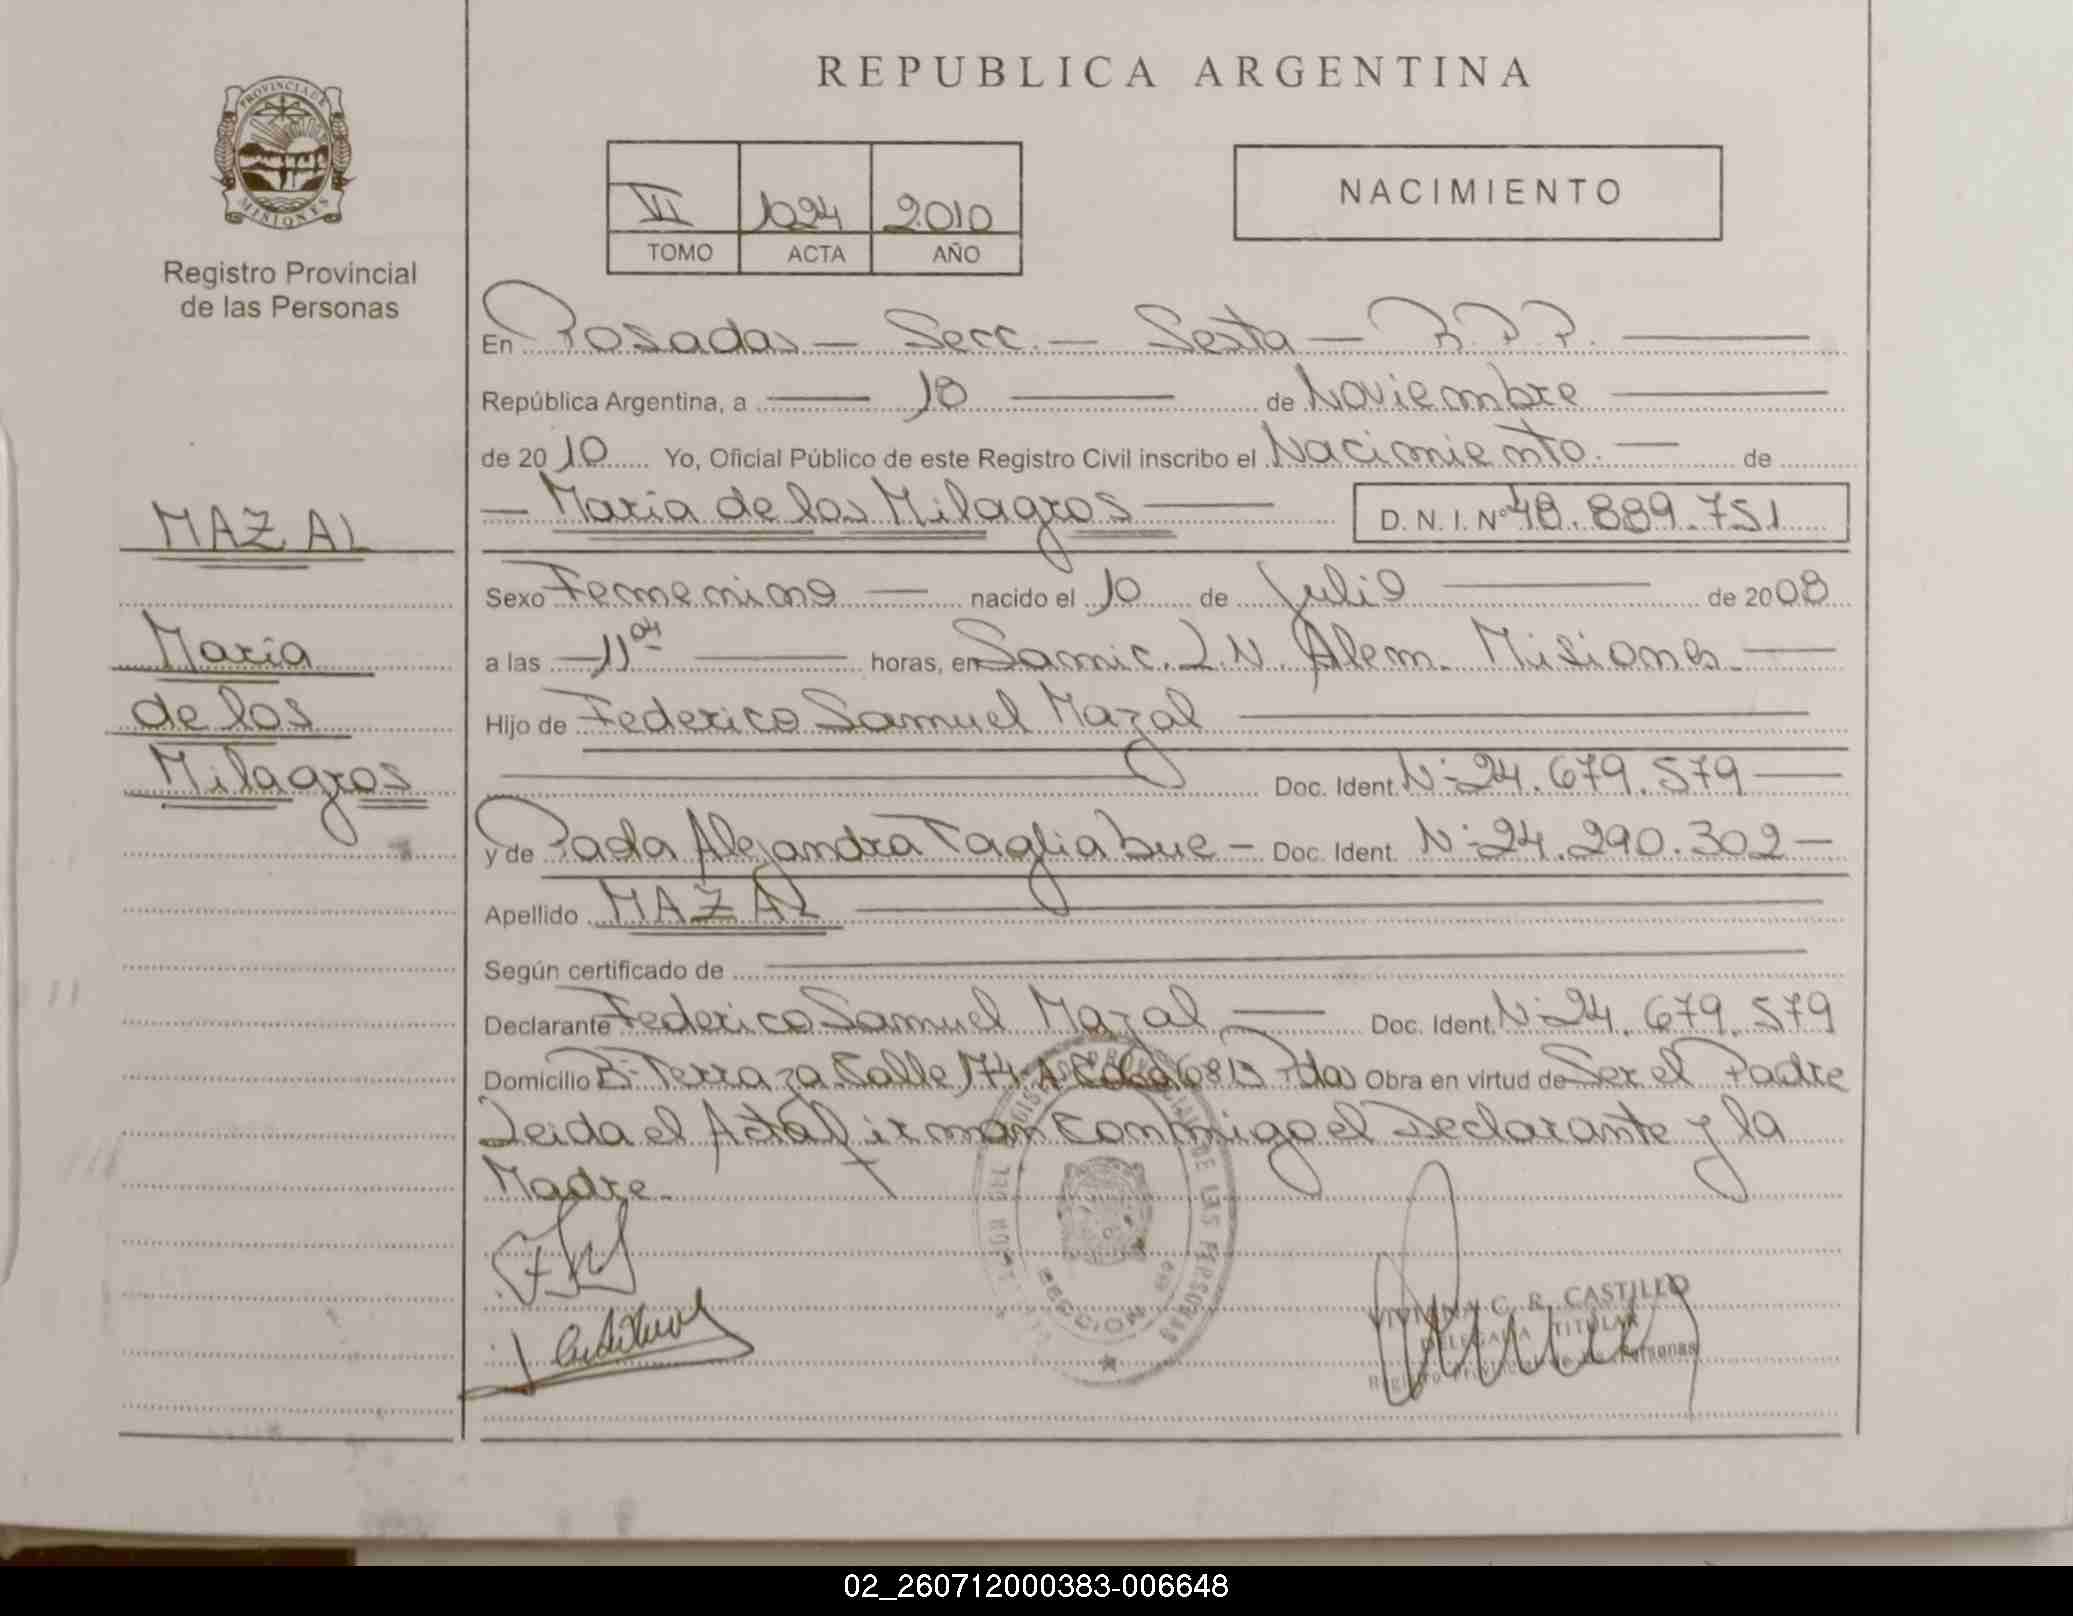 REPUBLICA ARGENTINA
PROVINCIA DE
MISIONES
Registro Provincial
de las Personas
VI 1024 2010
TOMO ACTA AÑO
NACIMIENTO
En Posadas — Secc. — Sexta — R.P.P.
República Argentina, a 18 de Noviembre
de 2010 Yo, Oficial Público de este Registro Civil inscribo el Nacimiento. de
Maria de los Milagros D.N.I. Nº 48.889.751
MAZAL
Maria
de los
Milagros
Sexo Femenino nacido el 10 de Julio de 2008
a las 11 horas, en Samic. L.N. Alem. Misiones
Hijo de Federico Samuel Mazal
Doc. Ident. Nº 24.679.579
y de Paola Alejandra Tagliabue Doc. Ident. Nº 24.290.302
Apellido MAZAL
Según certificado de
Declarante Federico Samuel Mazal Doc. Ident. Nº 24.679.579
Domicilio Bº Terraza Calle 174 A Casa 6813 Pdas Obra en virtud de Ser el Padre
Leida el Acta firman conmigo el Declarante y la
Madre.
VIVIANA C. R. CASTILLO
DELEGADA TITULAR
Registro Provincial de las Personas
DE LAS PERSONAS
SECCION
02_260712000383-006648